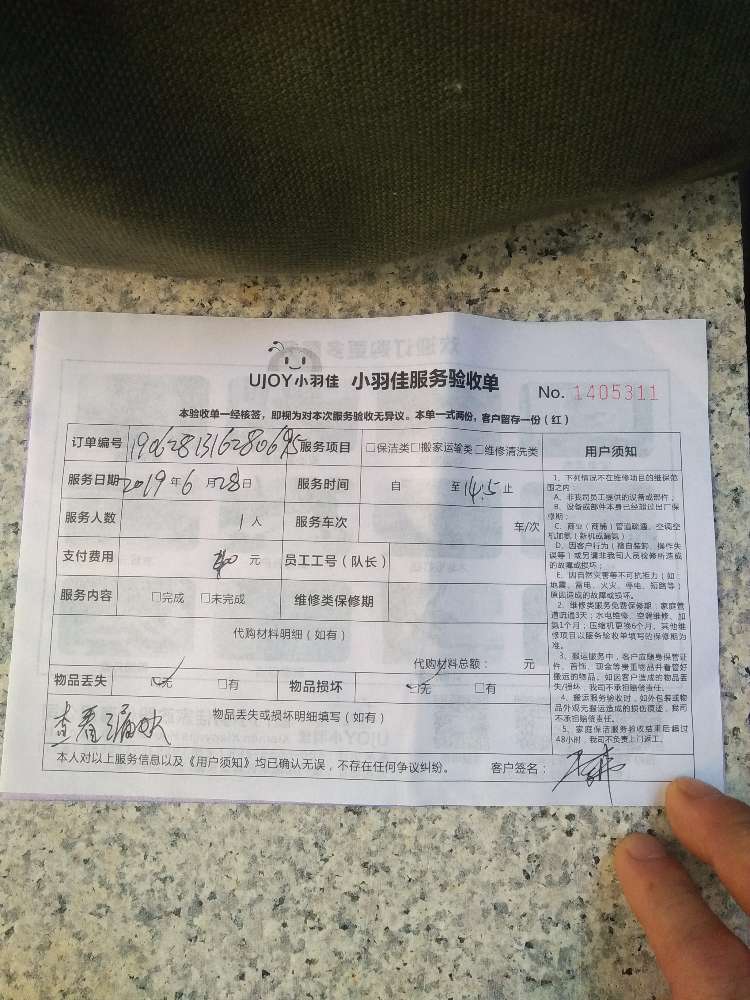 UJOY小羽佳 小羽佳服务验收单 No. 1405311
本验收单一经核签，即视为对本次服务验收无异议。本单一式两份，客户留存一份（红）
订单编号 1906281316280695 服务项目 □保洁类□搬家运输类□维修清洗类
服务日期 2019年6月28日 服务时间 自 至14.5止
服务人数 1人 服务车次 车/次
支付费用 元 员工工号（队长）
服务内容 □完成 □未完成 维修类保修期
代购材料明细（如有）
代购材料总额： 元
物品丢失 □无 □有 物品损坏 □无 □有
物品丢失或损坏明细填写（如有）
查看漏水
本人对以上服务信息以及《用户须知》均已确认无误，不存在任何争议纠纷。 客户签名：
用户须知
1、下列情况不在维修项目的维保范
围之内：
A、非我司员工提供的设备或部件；
B、设备或部件本身已经超过出厂保
修期；
C、商业（商铺）管道疏通、空调空
机加氨（新机或漏氨）
D、因客户行为（擅自装卸、操作失
误等）或另请非我司人员检修所造成
的故障或损坏；
E、因自然灾害等不可抗拒力（如：
地震、雷电、火灾、停电、短路等）
原因造成的故障或损坏。
2、维修类服务免费保修期：家庭管
道疏通3天；水电维修、空调维修、加
氨1个月；压缩机更换6个月。其他维
修项目以服务验收单填写的保修期为
准。
3、搬运服务中，客户应随身保管证
件、首饰、现金等贵重物品并看管好
搬运的物品，如因客户造成的物品丢
失/损坏，我司不承担赔偿责任。
4、搬运服务验收时，如外包装或物
品外观无搬运造成的损伤痕迹，我司
不承担赔偿责任。
5、家庭保洁服务验收结束后超过
48小时，我司不负责上门返工。